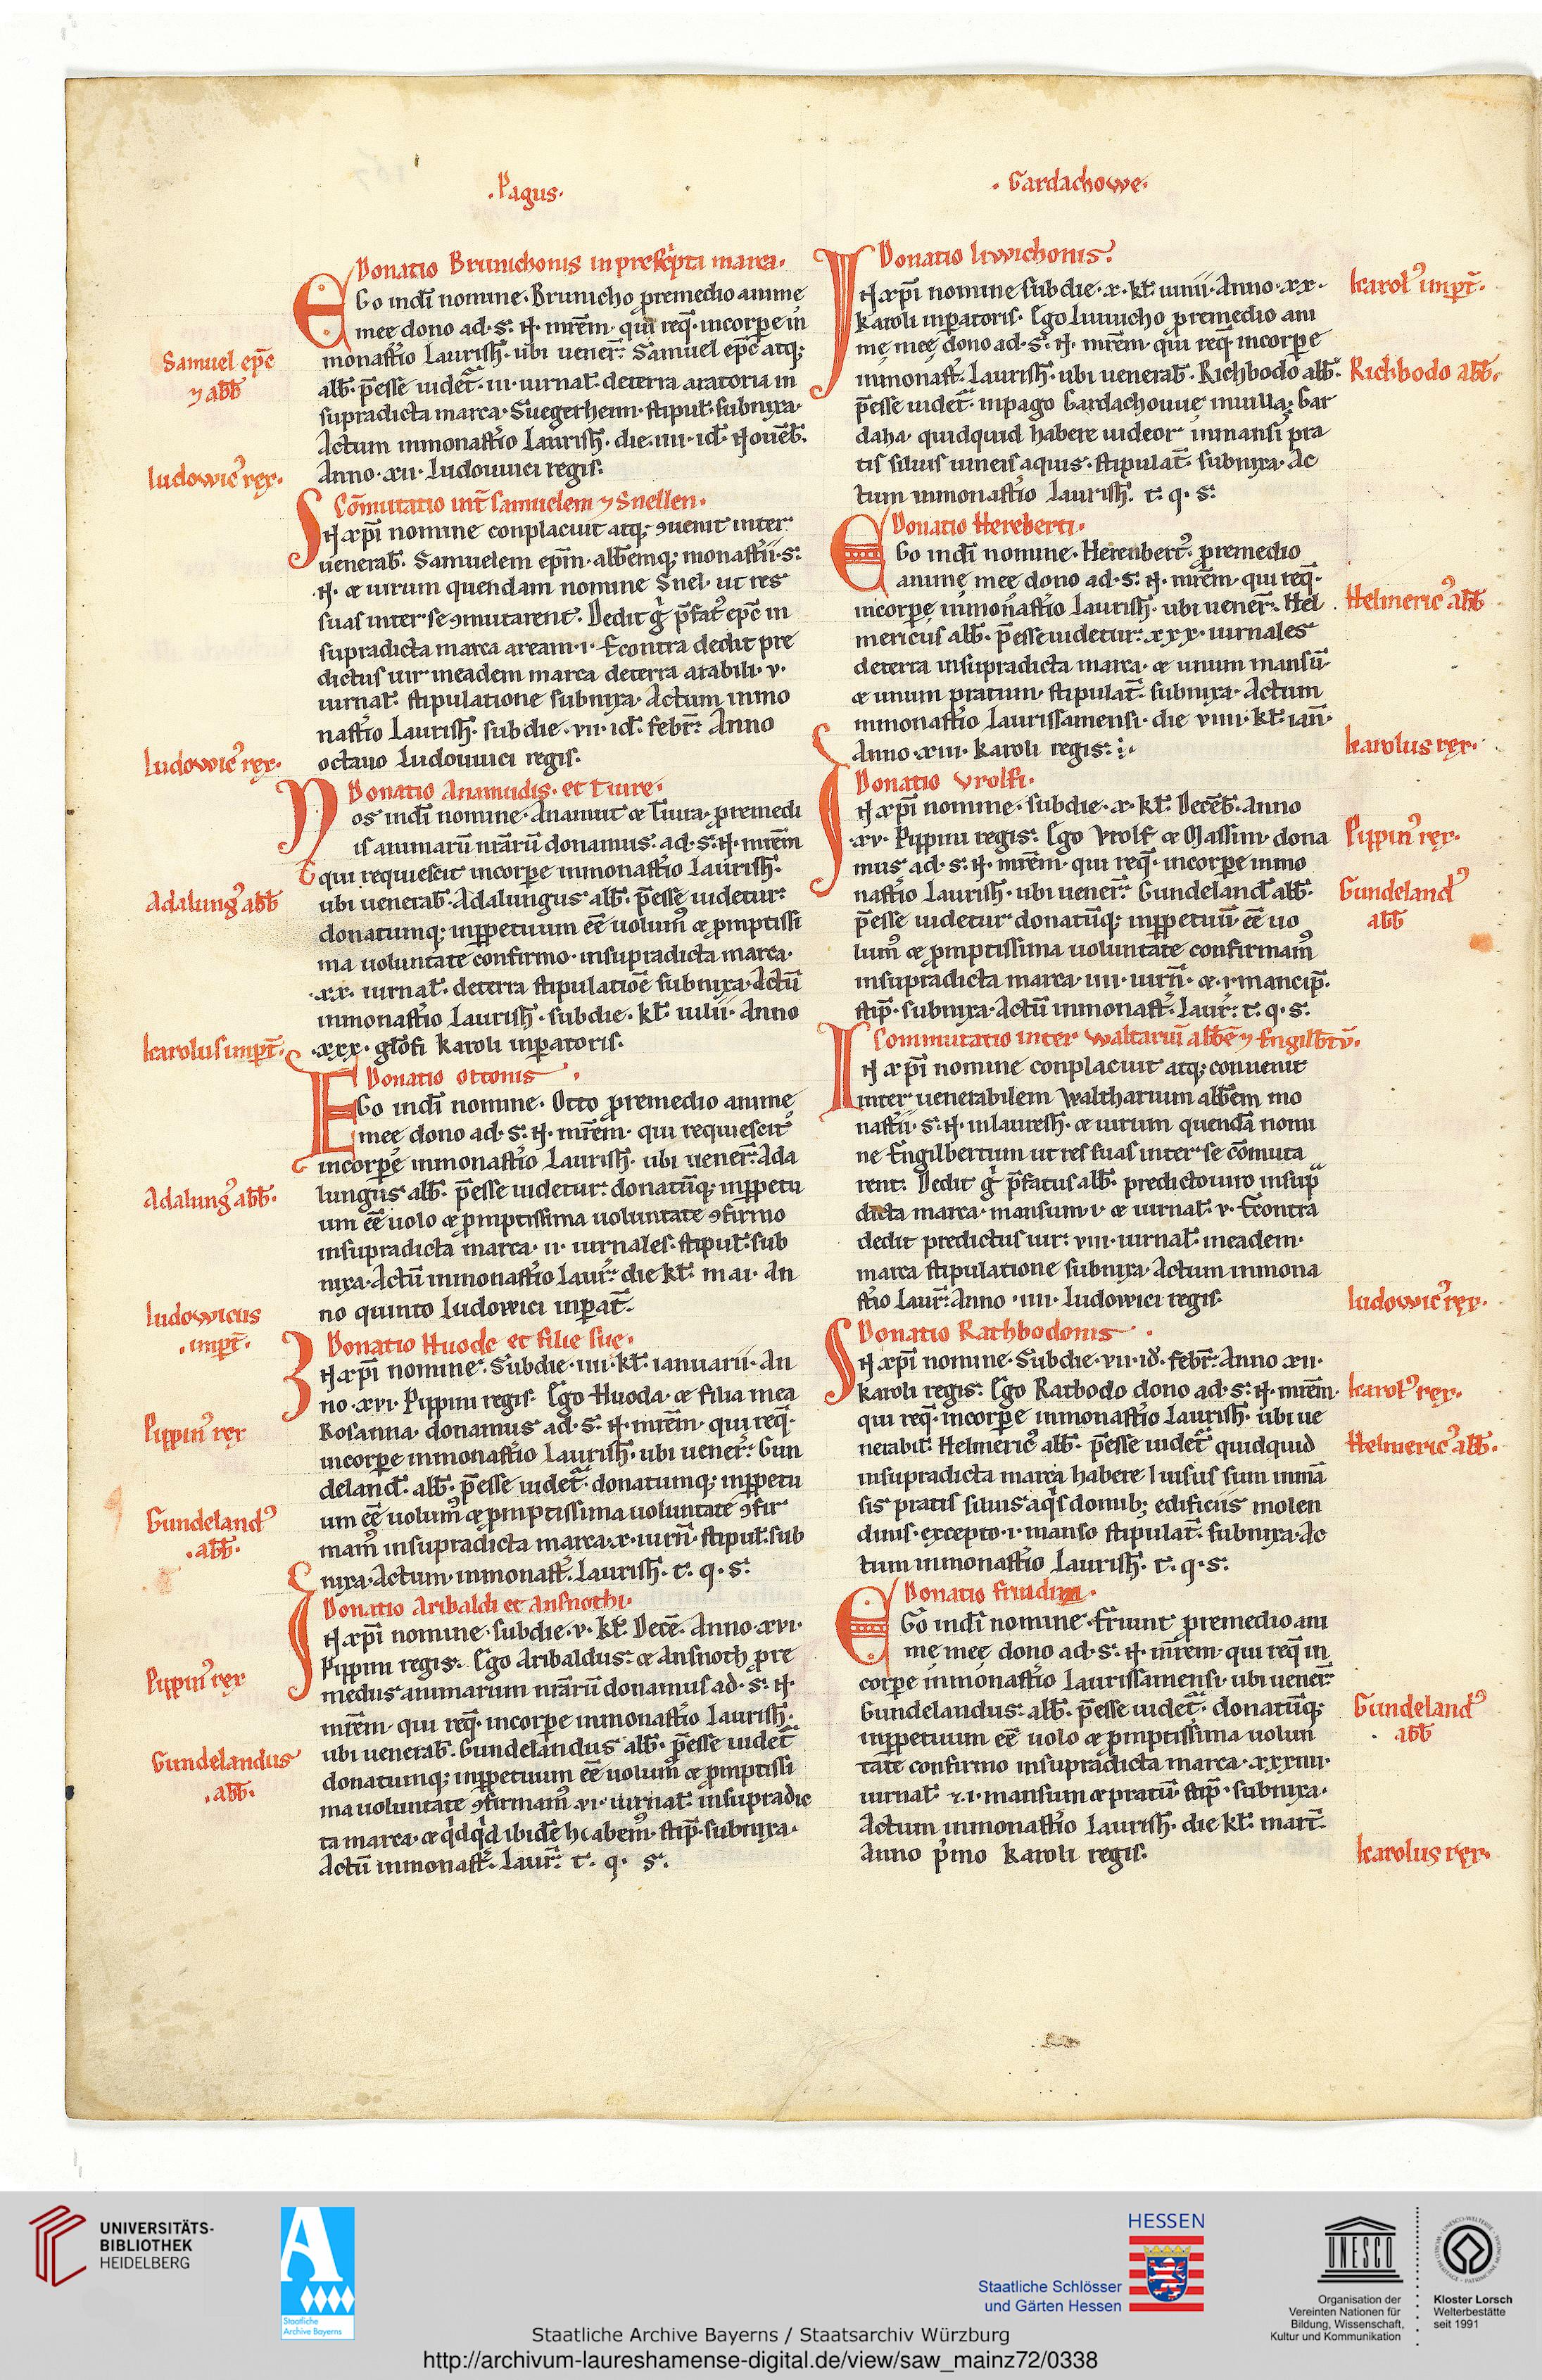 .Pagus.
Donatio Brunichonis in prescripta marca.
Ego in dī nomine. Brunicho p remedio anime
mee dono ad. s. N. mrēm. qui req. in corpe in
Samuel epc̄
⁊ abb̄
monastio Laurish. ubi uener. Samuel epc̄ atq;
abb. p̄esse uidet. III. iurnał. de terra aratoria in
supradicta marca. Suegerheim. stipuł. subnixa.
Actum in monastio Laurish. die. IIII. id. Nouēb.
Ludowic⁹ rex.
Anno. XII. Ludouuici regis.
Cōmutatio int̄ Samuelem ⁊ Snellen.
IN xp̄i nomine conplacuit atq; ꝯuenit inter
uenerab. Samuelem epm̄. abbemq; monastii. s.
N. & uirum quendam nomine Snel. ut res
suas inter se ꝯmutarent. Dedit g̊ p̄fat⁹ epc̄ in
supradicta marca aream. I. Econtra dedit pre
dictus uir in eadem marca de terra arabili. V.
iurnał. stipulatione subnixa. Actum in mo
nastio Laurish. sub die. VII. id. febr. Anno
Ludowic⁹ rex.
octauo Ludouuici regis.
Donatio Anamudis. et Tiure.
Nos in dī nomine. Anamut & Tiura. p remedi
is animarū nr̄arū donamus. ad. s. N. mrēm
qui requiescit in corpe in monastio Laurish.
Adalung⁹ abb̄
ubi uenerab. Adalungus abb. p̄esse uidetur.
donatumq; in ppetuum eē uolum⁹ & pmptissi
ma uoluntate confirmo. in supradicta marca.
.XX. iurnał. de terra stipulatiōe subnixa. Actū
in monastio Laurish. sub die. kł. iulii. Anno
Karolus impr̄.
.XXX. glōsi Karoli inperatoris.
Donatio Ottonis.
Ego in dī nomine. Otto p remedio anime
mee dono ad. s. N. mrēm. qui requiescit
in corpe in monastio Laurish. ubi uener. Ada
Adalung⁹ abb̄.
lungus abb. p̄esse uidetur. donatūq; in ppetu
um eē uolo & pmptissima uoluntate ꝯfirmo
in supradicta marca. II. iurnales. stipuł. sub
nixa. Actū in monastio Laur. die kł. mai. An
Ludowicus
.impr̄.
no quinto Ludowici inperat̄.
Donatio Huode et filie sue.
IN xp̄i nomine. Sub die. IIII. kł. ianuarii. An
no. XVI. Pippini regis. Ego Huoda. & filia mea
Pippin⁹ rex
Rosanna. donamus ad. s. N. mrēm. qui req.
in corpe in monastio Laurish. ubi uener. Gun
deland. abb. p̄esse uidet. donatumq; in ppetu
Gundeland⁹
.abb̄.
um eē uolum⁹ & pmptissima uoluntate ꝯfir
mam⁹ in supradicta marca. X. iurn̄. stipuł. sub
nixa. Actum. in monast. Laurish. t. q. s.
Donatio Aribaldi et Ansnothi.
IN xp̄i nomine. sub die. V. kł. Decē. Anno. XVI.
Pippin⁹ rex
Pippini regis. Ego Aribaldus. & Ansnoth p re
mediis animarum nr̄arū donamus ad. s. N.
mrēm. qui req. in corpe in monastio Laurish.
Gundelandus
.abb̄.
ubi uenerab. Gundelandus abb. p̄esse uidet
donatumq; in ppetuum eē uolum⁹ & pmptissi
ma uoluntate ꝯfirmam⁹. VI. iurnał. in supradic
ta marca. & qdqd ibidē habem⁹. stip̄. subnixa.
Actū in monast. Laur. t. q. s.
. Gardachowe.
Donatio Liwichonis.
IN xp̄i nomine sub die. X. kł. iunii. Anno. XX.
Karol⁹ impr̄.
Karoli inperatoris. Ego Liuuicho p remedio ani
me mee dono ad. s. N. mrēm. qui req. in corpe
in monast. Laurish. ubi uenerab. Richbodo abb.
Richbodo abb̄.
p̄esse uidet. in pago Gardachouue in uilla. Gar
daha. quidquid habere uideor in mansi pra
tis siluis uineis aquis. stipulat. subnixa. Ac
tum in monastio Laurish. t. q. s.
Donatio Hereberti.
Ego in dī nomine. Herenbert⁹. p remedio
anime mee dono ad. s. N. mrēm. qui req.
in corpe in monastio Laurish. ubi uener. Hel
Helmeric⁹ abb̄
mericus abb. p̄esse uidetur. XXX. iurnales
de terra in supradicta marca. & unum mansū.
& unum pratum. stipulat. subnixa. Actum
in monastio Laurissamensi. die VIIII. kł. ian̄.
Karolus rex.
Anno. XIII. Karoli regis.
Donatio Vrolfi.
IN xp̄i nomine. sub die. X. kł. Decēb. Anno
.XV. Pippini regis. Ego Vrolf & Massim. dona
Pippin⁹ rex.
mus ad. s. N. mrēm. qui req. in corpe in mo
nastio Laurish. ubi uener. Gundeland abb.
Gundeland⁹
abb̄
p̄esse uidetur donatūq; in ppetuū eē uo
lum⁹ & pmptissima uoluntate confirmam⁹
in supradicta marca. IIII. iurn̄. & .I. mancip̄.
stip̄. subnixa. Actū in monast. Laur. t. q. s.
Commutatio inter Waltariū abbē ⁊ Engilbtū.
IN xp̄i nomine conplacuit atq; conuenit
inter uenerabilem Waltharium abbem mo
nastii. s. N. in lauresh. & uirum quendā nomi
ne Engilbertum ut res suas inter se cōmuta
rent. Dedit g̊ p̄fatus abb. predicto uiro in sup
dicta marca. mansum. I. & iurnał. V. Econtra
dedit predictus uir. VIII. iurnał. in eadem.
marca stipulatione subnixa. Actum in mona
stio Laur. Anno .IIII. Ludowici regis.
Ludowic⁹ rex.
Donatio Rathbodonis.
IN xp̄i nomine. Sub die. VII. id. febr. Anno XII.
Karoli regis. Ego Ratbodo dono ad. s. N. mrēm.
Karol⁹ rex.
qui req. in corpe in monastio Laurish. ubi ue
nerabit. Helmeric⁹ abb. p̄esse uidet quidquid
Helmeric⁹ abb̄.
in supradicta marca habere uisus sum in mā
sis pratis siluis aqs domib; edificiis molen
dinis. excepto. I. manso stipulat. subnixa. Ac
tum in monastio Laurish. t. q. s.
Donatio Friudini.
Ego in dī nomine. Friunt p remedio ani
me mee dono ad. s. N. mrēm. qui req in
corpe in monastio Laurissamensi. ubi uener
Gundelandus. abb. p̄esse uidet. donatūq;
Gundeland⁹
. abb̄
in ppetuum eē uolo & pmptissima uolun
tate confirmo in supradicta marca. XXXIIII.
iurnał. ⁊ .I. mansum & pratū stip̄. subnixa.
Actum in monastio Laurish. die kł. mart.
Anno p̄mo Karoli regis.
Karolus rex.
UNIVERSITÄTS-
BIBLIOTHEK
HEIDELBERG
Staatliche
Archive Bayerns
HESSEN
Staatliche Schlösser
und Gärten Hessen
UNESCO
Organisation der
Vereinten Nationen für
Bildung, Wissenschaft,
Kultur und Kommunikation
Kloster Lorsch
Welterbestätte
seit 1991
Staatliche Archive Bayerns / Staatsarchiv Würzburg
http://archivum-laureshamense-digital.de/view/saw_mainz72/0338